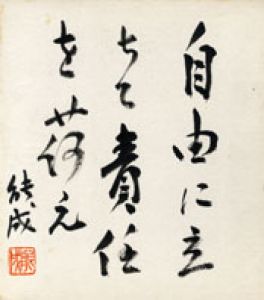 自由に立
ちて責任
を荷え
能成